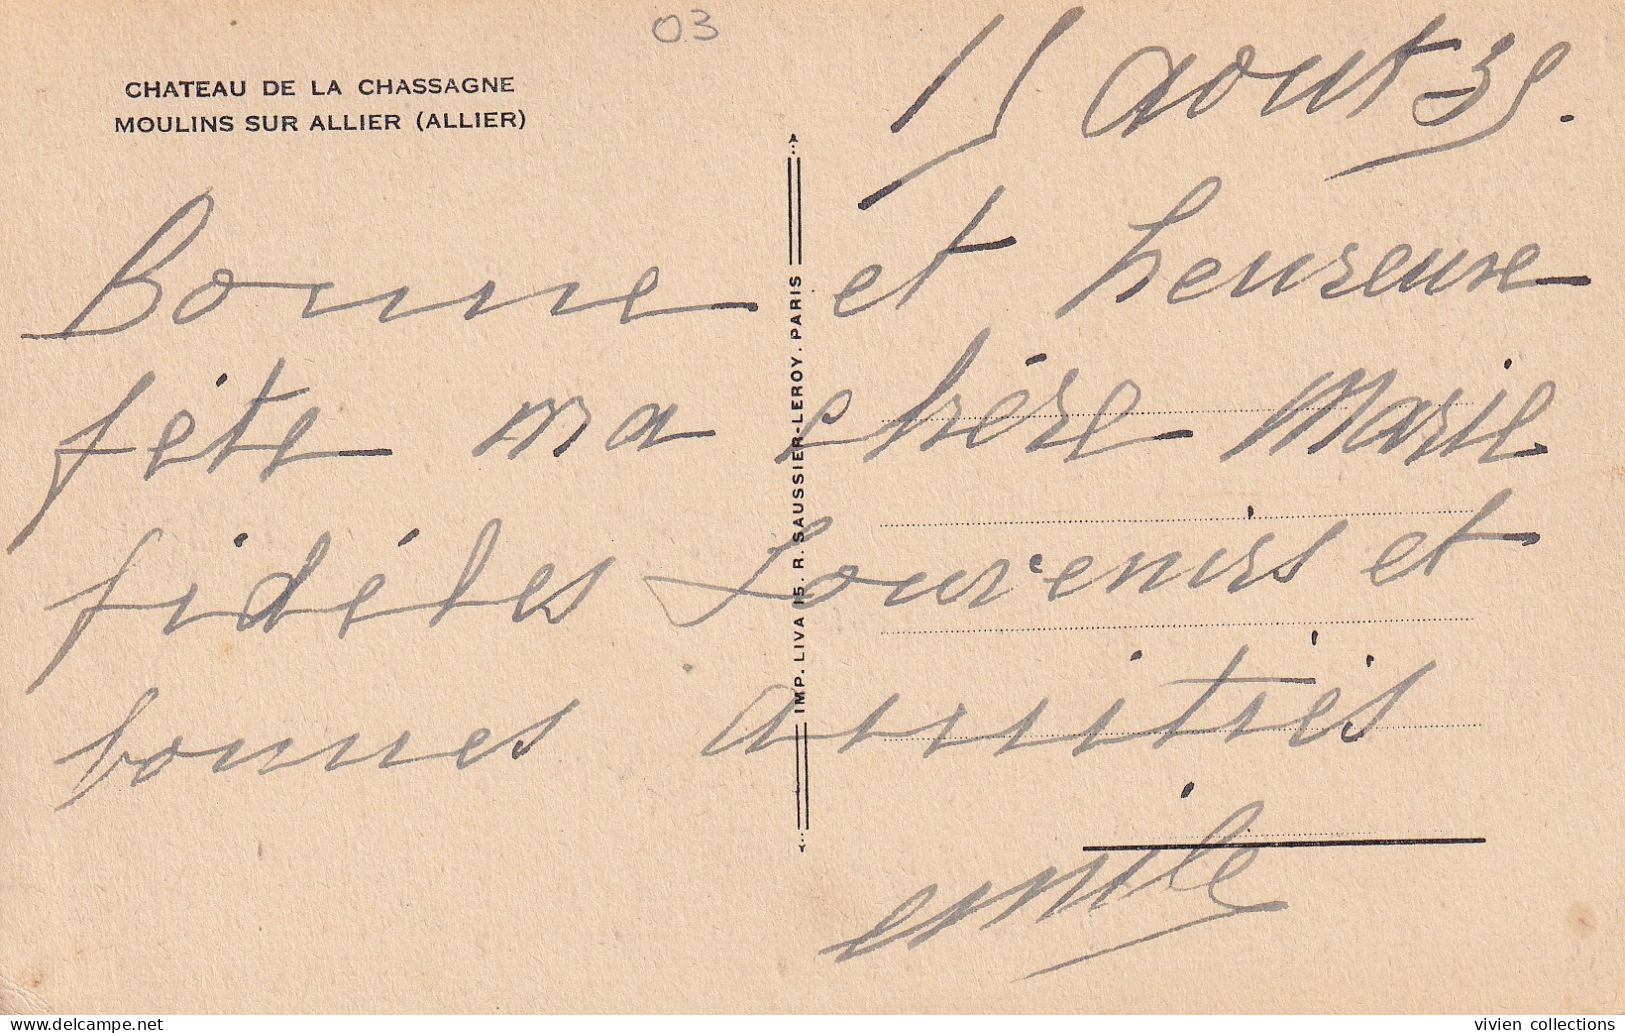 03
CHATEAU DE LA CHASSAGNE
MOULINS SUR ALLIER (ALLIER)
15 aout 35.
Bonne et heureuse
fête ma chère Marie
fidéles Souvenirs et
bonnes amitiés
emile
IMP. LIVA 15. R. SAUSSIER-LEROY. PARIS
vivien collections